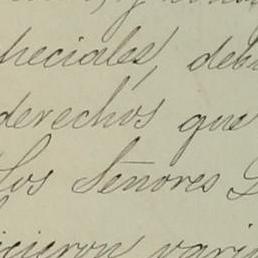 peciales, deb
derechos que
Los Señores
icieron vari